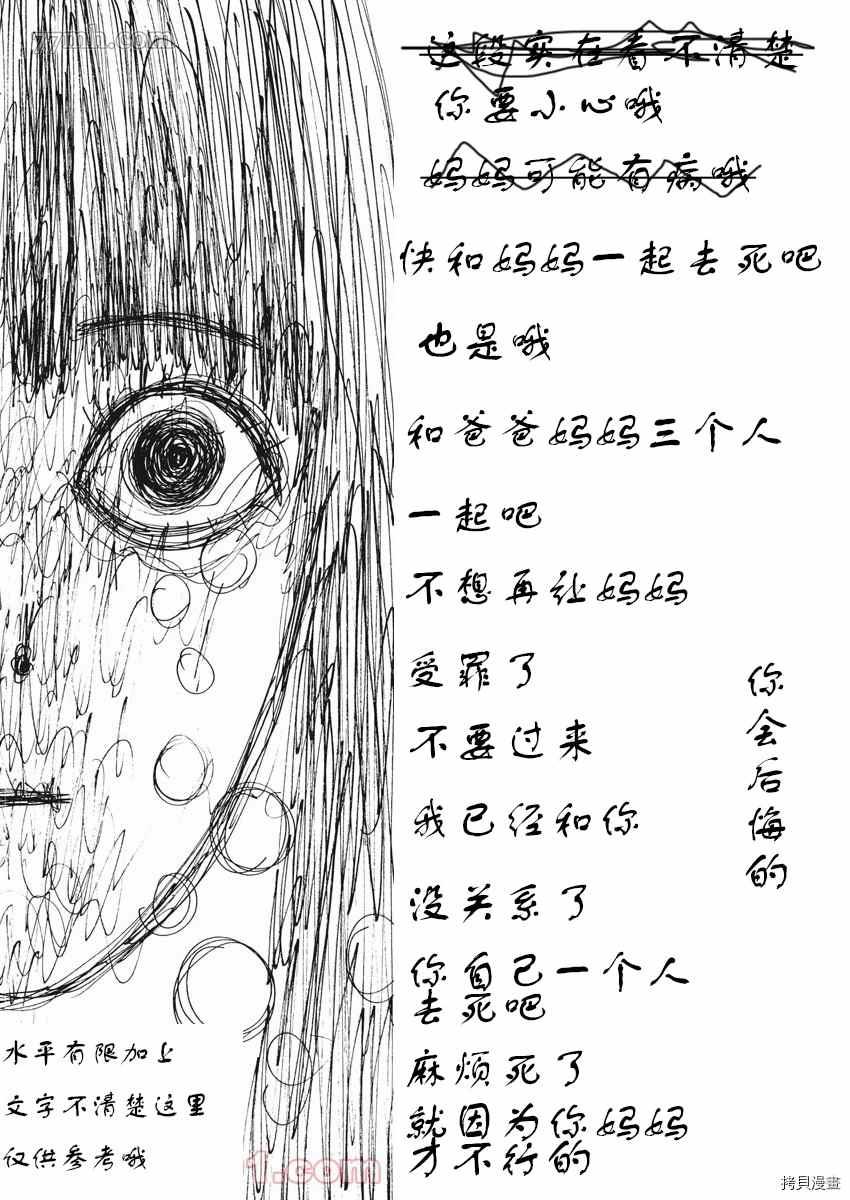 77mh.com
这段实在看不清楚
你要小心哦
妈妈可能有病哦
快和妈妈一起去死吧
也是哦
和爸爸妈妈三个人
一起吧
不想再让妈妈
受罪了
不要过来
我已经和你
没关系了
你自己一个人
去死吧
麻烦死了
就因为你妈妈
才不行的
你会后悔的
水平有限加上
文字不清楚这里
仅供参考哦
1.com
拷贝漫畫